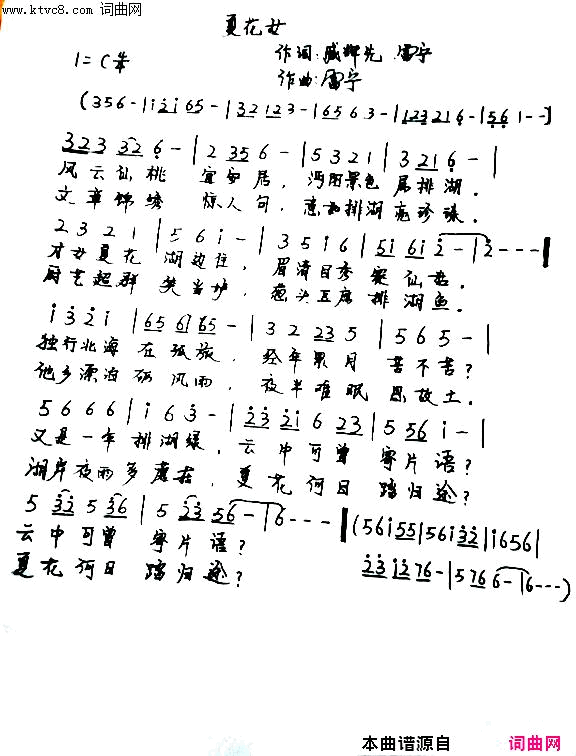 www.ktvc8.com 词曲网
夏花女
作词: 雷宁
1=C
作曲:雷宁
(356-|i2i65-|32123-|16563-|123216-|561--)
323326-|2356-|5321|3216-|
风云仙桃 宜安居, 沔阳景色属排湖.
文章锦绣 惊人句, 排湖亮珍珠.
2321|56i-|35i6|5i6i2-|2---|
才女夏花 湖边住, 眉清目秀赛仙
厨艺超群 炉, 排湖鱼.
i32i|656i65-|32235|565-|
独行北海在孤旅, 经年累月 苦不苦?
他乡漂泊 风雨, 夜半难眠 思故土.
5666|i63-|232i623|556i-|
又是一年排湖绿, 云中可曾 寄片语?
湖岸夜雨多 , 夏花何日 踏归途?
532536|52356-|6---|(56i55|56i32|i656|
云中可曾 寄片语?
夏花何日 踏归途?
23i276-|5766-|6---)
本曲谱源自
词曲网